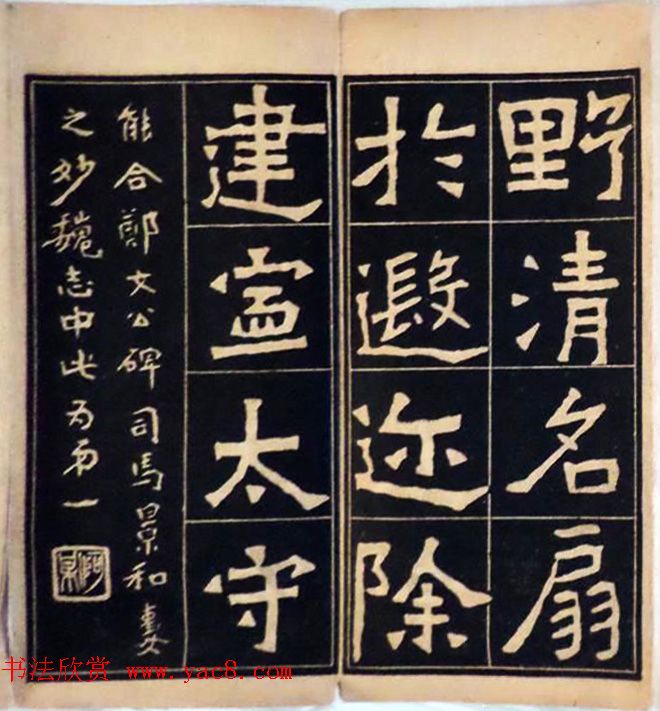 野清名扇
於遐迩除
建寧太守
能合鄭文公碑司馬景和妻
之妙魏志中此为弟一
书法欣赏 www.yac8.com